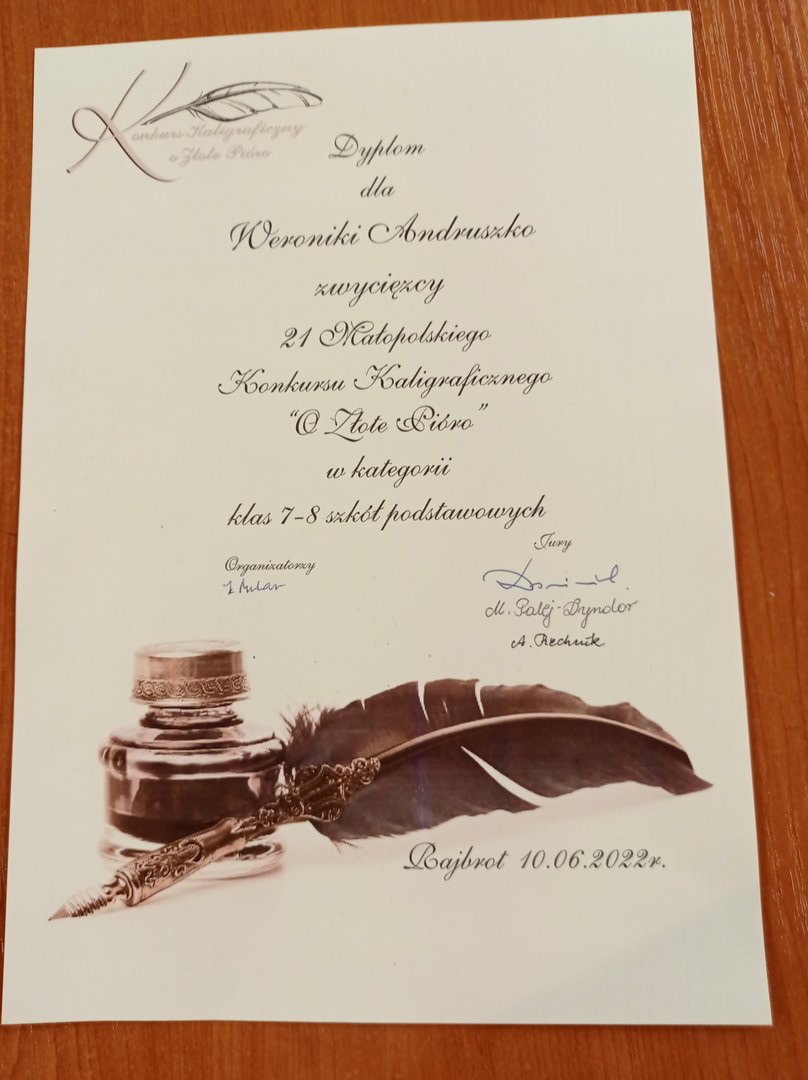 Konkurs Kaligraficzny
o Złote Pióro
Dyplom
dla
Weroniki Andruszko
zwycięzcy
21 Małopolskiego
Konkursu Kaligraficznego
"O Złote Pióro"
w kategorii
klas 7-8 szkół podstawowych
Jury
Organizatorzy
M. Palej-Dyndor
A. Rechnik
Rajbrot 10.06.2022r.